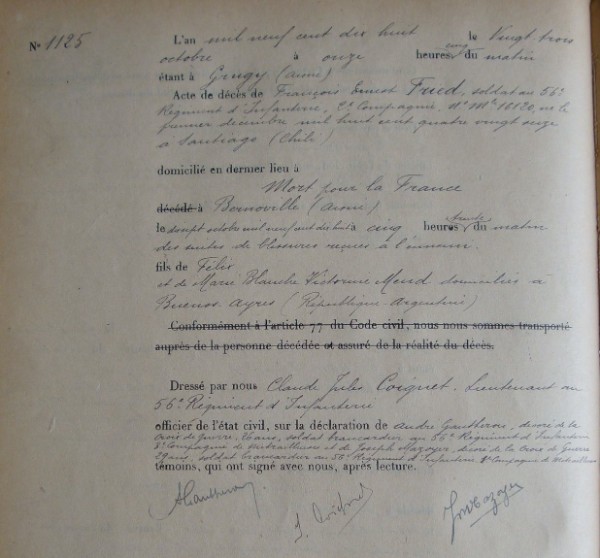 N° 1125
L'an mil neuf cent dix huit le Vingt trois
octobre à onze heures cinq du matin
étant à Grugy (Aisne)
Acte de décès de François Ernest Fried, soldat au 56e
Régiment d'Infanterie, Cie Compagnie, N° Mle 10120, né le
premier décembre mil huit cent quatre vingt onze
à Santiago (Chili)
domicilié en dernier lieu à
Mort pour la France
décédé à Bernoville (Aisne)
le dix sept octobre mil neuf cent dix huit à cinq heures trente du matin
des suites de blessures reçues à l'ennemi
fils de Félix
et de Marie Blanche Victorine domiciliés à
Buenos Ayres (République Argentine)
Conformément à l'article 77 du Code civil, nous nous sommes transporté
auprès de la personne décédée et assuré de la réalité du décès.
Dressé par nous Claude Jules Coignet, Lieutenant au
56e Régiment d'Infanterie
officier de l'état civil, sur la déclaration de André Gautheron, décoré de la
Croix de Guerre, 26 ans, soldat brancardier au 56e Régiment d'Infanterie
Compagnie de Mitrailleuses et de Joseph Mazoyer, décoré de la Croix de Guerre
29 ans, soldat brancardier au 56e Régiment d'Infanterie Compagnie de Mitrailleuses
témoins, qui ont signé avec nous, après lecture.
AGautheron
J. Coignet
JMazoyer